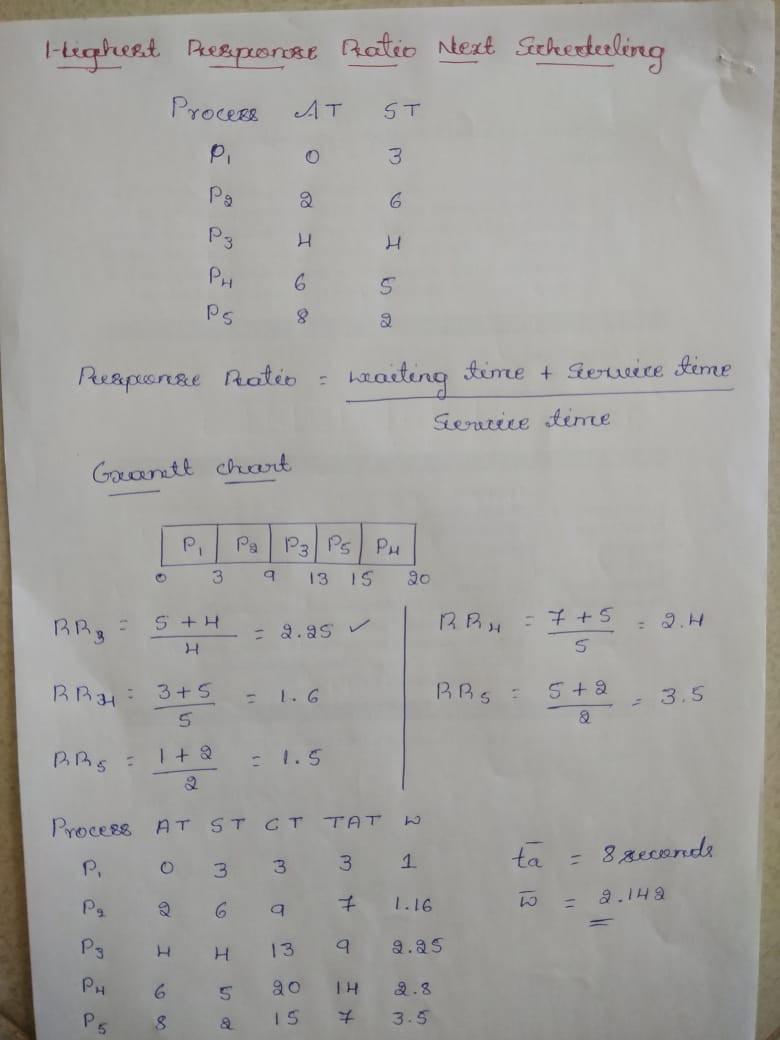 Highest Response Ratio Next Scheduling
Process AT ST
P1 0 3
P2 2 6
P3 4 4
P4 6 5
P5 8 2
Response Ratio = waiting time + Service time
Service time
Gxantt chart
P1 P2 P3 P5 P4
0 3 9 13 15 20
RR3 = 5 + 4 / 4 = 2.25 ✓
RR4 = 3 + 5 / 5 = 1.6
RR5 = 1 + 2 / 2 = 1.5
RR4 = 7 + 5 / 5 = 2.4
RR5 = 5 + 2 / 2 = 3.5
Process AT ST CT TAT W
P1 0 3 3 3 1
P2 2 6 9 7 1.16
P3 4 4 13 9 2.25
P4 6 5 20 14 2.8
P5 8 2 15 7 3.5
t̄a = 8 seconds
w̄ = 2.142